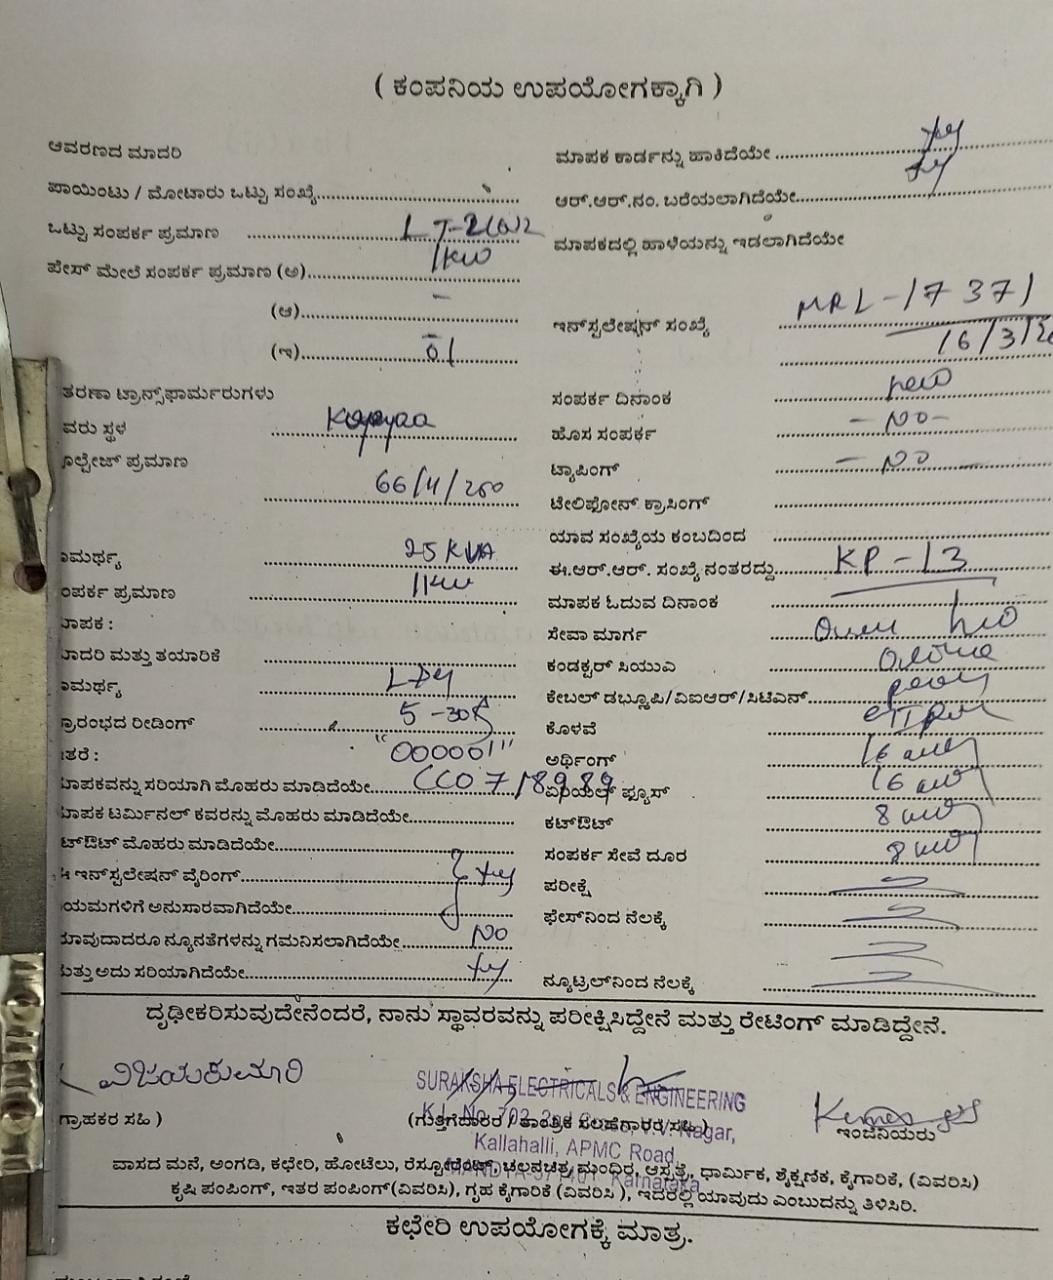 ( ಕಂಪನಿಯ ಉಪಯೋಗಕ್ಕಾಗಿ )
ಆವರಣದ ಮಾದರಿ
ಪಾಯಿಂಟು / ಮೋಟಾರು ಒಟ್ಟು ಸಂಖ್ಯೆ
ಒಟ್ಟು ಸಂಪರ್ಕ ಪ್ರಮಾಣ
ಪೇಸ್ ಮೇಲೆ ಸಂಪರ್ಕ ಪ್ರಮಾಣ (ಅ) 1kw
(ಆ) -
(ಇ) 01
ತರಣಾ ಟ್ರಾನ್ಸ್‌ಫಾರ್ಮರುಗಳು
ವರು ಸ್ಥಳ
ೋಲ್ಟೇಜ್ ಪ್ರಮಾಣ
66/11/250
ಾಮರ್ಥ್ಯ 25 KVA
ಂಪರ್ಕ ಪ್ರಮಾಣ 1kw
ಾಪಕ :
ಾದರಿ ಮತ್ತು ತಯಾರಿಕೆ
ಾಮರ್ಥ್ಯ
್ರಾರಂಭದ ರೀಡಿಂಗ್ 5-30A
ತರೆ : "000001"
ಾಪಕವನ್ನು ಸರಿಯಾಗಿ ಮೊಹರು ಮಾಡಿದೆಯೇ
ಾಪಕ ಟರ್ಮಿನಲ್ ಕವರನ್ನು ಮೊಹರು ಮಾಡಿದೆಯೇ
ಟ್‌ಔಟ್ ಮೊಹರು ಮಾಡಿದೆಯೇ
ಇನ್‌ಸ್ಟಲೇಷನ್ ವೈರಿಂಗ್
ಯಮಗಳಿಗೆ ಅನುಸಾರವಾಗಿದೆಯೇ
ಾವುದಾದರೂ ನ್ಯೂನತೆಗಳನ್ನು ಗಮನಿಸಲಾಗಿದೆಯೇ NO
ುತ್ತು ಅದು ಸರಿಯಾಗಿದೆಯೇ
ಮಾಪಕ ಕಾರ್ಡನ್ನು ಹಾಕಿದೆಯೇ
ಆರ್.ಆರ್.ನಂ. ಬರೆಯಲಾಗಿದೆಯೇ
ಮಾಪಕದಲ್ಲಿ ಹಾಳೆಯನ್ನು ಇಡಲಾಗಿದೆಯೇ
ಇನ್‌ಸ್ಟಲೇಷನ್ ಸಂಖ್ಯೆ MRL-17371
16/3/2
ಸಂಪರ್ಕ ದಿನಾಂಕ new
ಹೊಸ ಸಂಪರ್ಕ - NO -
ಟ್ಯಾಪಿಂಗ್ - NO -
ಟೆಲಿಫೋನ್ ಕ್ರಾಸಿಂಗ್
ಯಾವ ಸಂಖ್ಯೆಯ ಕಂಬದಿಂದ
ಈ.ಆರ್.ಆರ್. ಸಂಖ್ಯೆ ನಂತರದ್ದು KP-13
ಮಾಪಕ ಓದುವ ದಿನಾಂಕ
ಸೇವಾ ಮಾರ್ಗ
ಕಂಡಕ್ಟರ್ ಸಿಯುಎ
ಕೇಬಲ್ ಡಬ್ಲ್ಯೂಪಿ/ವಿಐಆರ್/ಸಿಟಿಎನ್
ಕೊಳವೆ
ಅರ್ಥಿಂಗ್ 16
ಏರಿಯಲ್ ಫ್ಯೂಸ್ 16
ಕಟ್‌ಔಟ್ 8
ಸಂಪರ್ಕ ಸೇವೆ ದೂರ 8
ಪರೀಕ್ಷೆ
ಫೇಸ್‌ನಿಂದ ನೆಲಕ್ಕೆ
ನ್ಯೂಟ್ರಲ್‌ನಿಂದ ನೆಲಕ್ಕೆ
ದೃಢೀಕರಿಸುವುದೇನೆಂದರೆ, ನಾನು ಸ್ಥಾವರವನ್ನು ಪರೀಕ್ಷಿಸಿದ್ದೇನೆ ಮತ್ತು ರೇಟಿಂಗ್ ಮಾಡಿದ್ದೇನೆ.
ವಿಜಯಕುಮಾರಿ
SURAKSHA ELECTRICALS & ENGINEERING
ಗ್ರಾಹಕರ ಸಹಿ )
(ಗುತ್ತಿಗೆದಾರರ / ತಾಂತ್ರಿಕ ಸಲಹೆಗಾರರ ಸಹಿ )
ಇಂಜಿನಿಯರು
Nagar,
Kallahalli, APMC Road,
Karnataka
ವಾಸದ ಮನೆ, ಅಂಗಡಿ, ಕಛೇರಿ, ಹೋಟೆಲು, ರೆಸ್ಟೋರೆಂಟ್, ಚಲನಚಿತ್ರ ಮಂದಿರ, ಆಸ್ಪತ್ರೆ, ಧಾರ್ಮಿಕ, ಶೈಕ್ಷಣಿಕ, ಕೈಗಾರಿಕೆ, (ವಿವರಿಸಿ)
ಕೃಷಿ ಪಂಪಿಂಗ್, ಇತರ ಪಂಪಿಂಗ್(ವಿವರಿಸಿ), ಗೃಹ ಕೈಗಾರಿಕೆ (ವಿವರಿಸಿ ), ಇದರಲ್ಲಿ ಯಾವುದು ಎಂಬುದನ್ನು ತಿಳಿಸಿರಿ.
ಕಛೇರಿ ಉಪಯೋಗಕ್ಕೆ ಮಾತ್ರ.